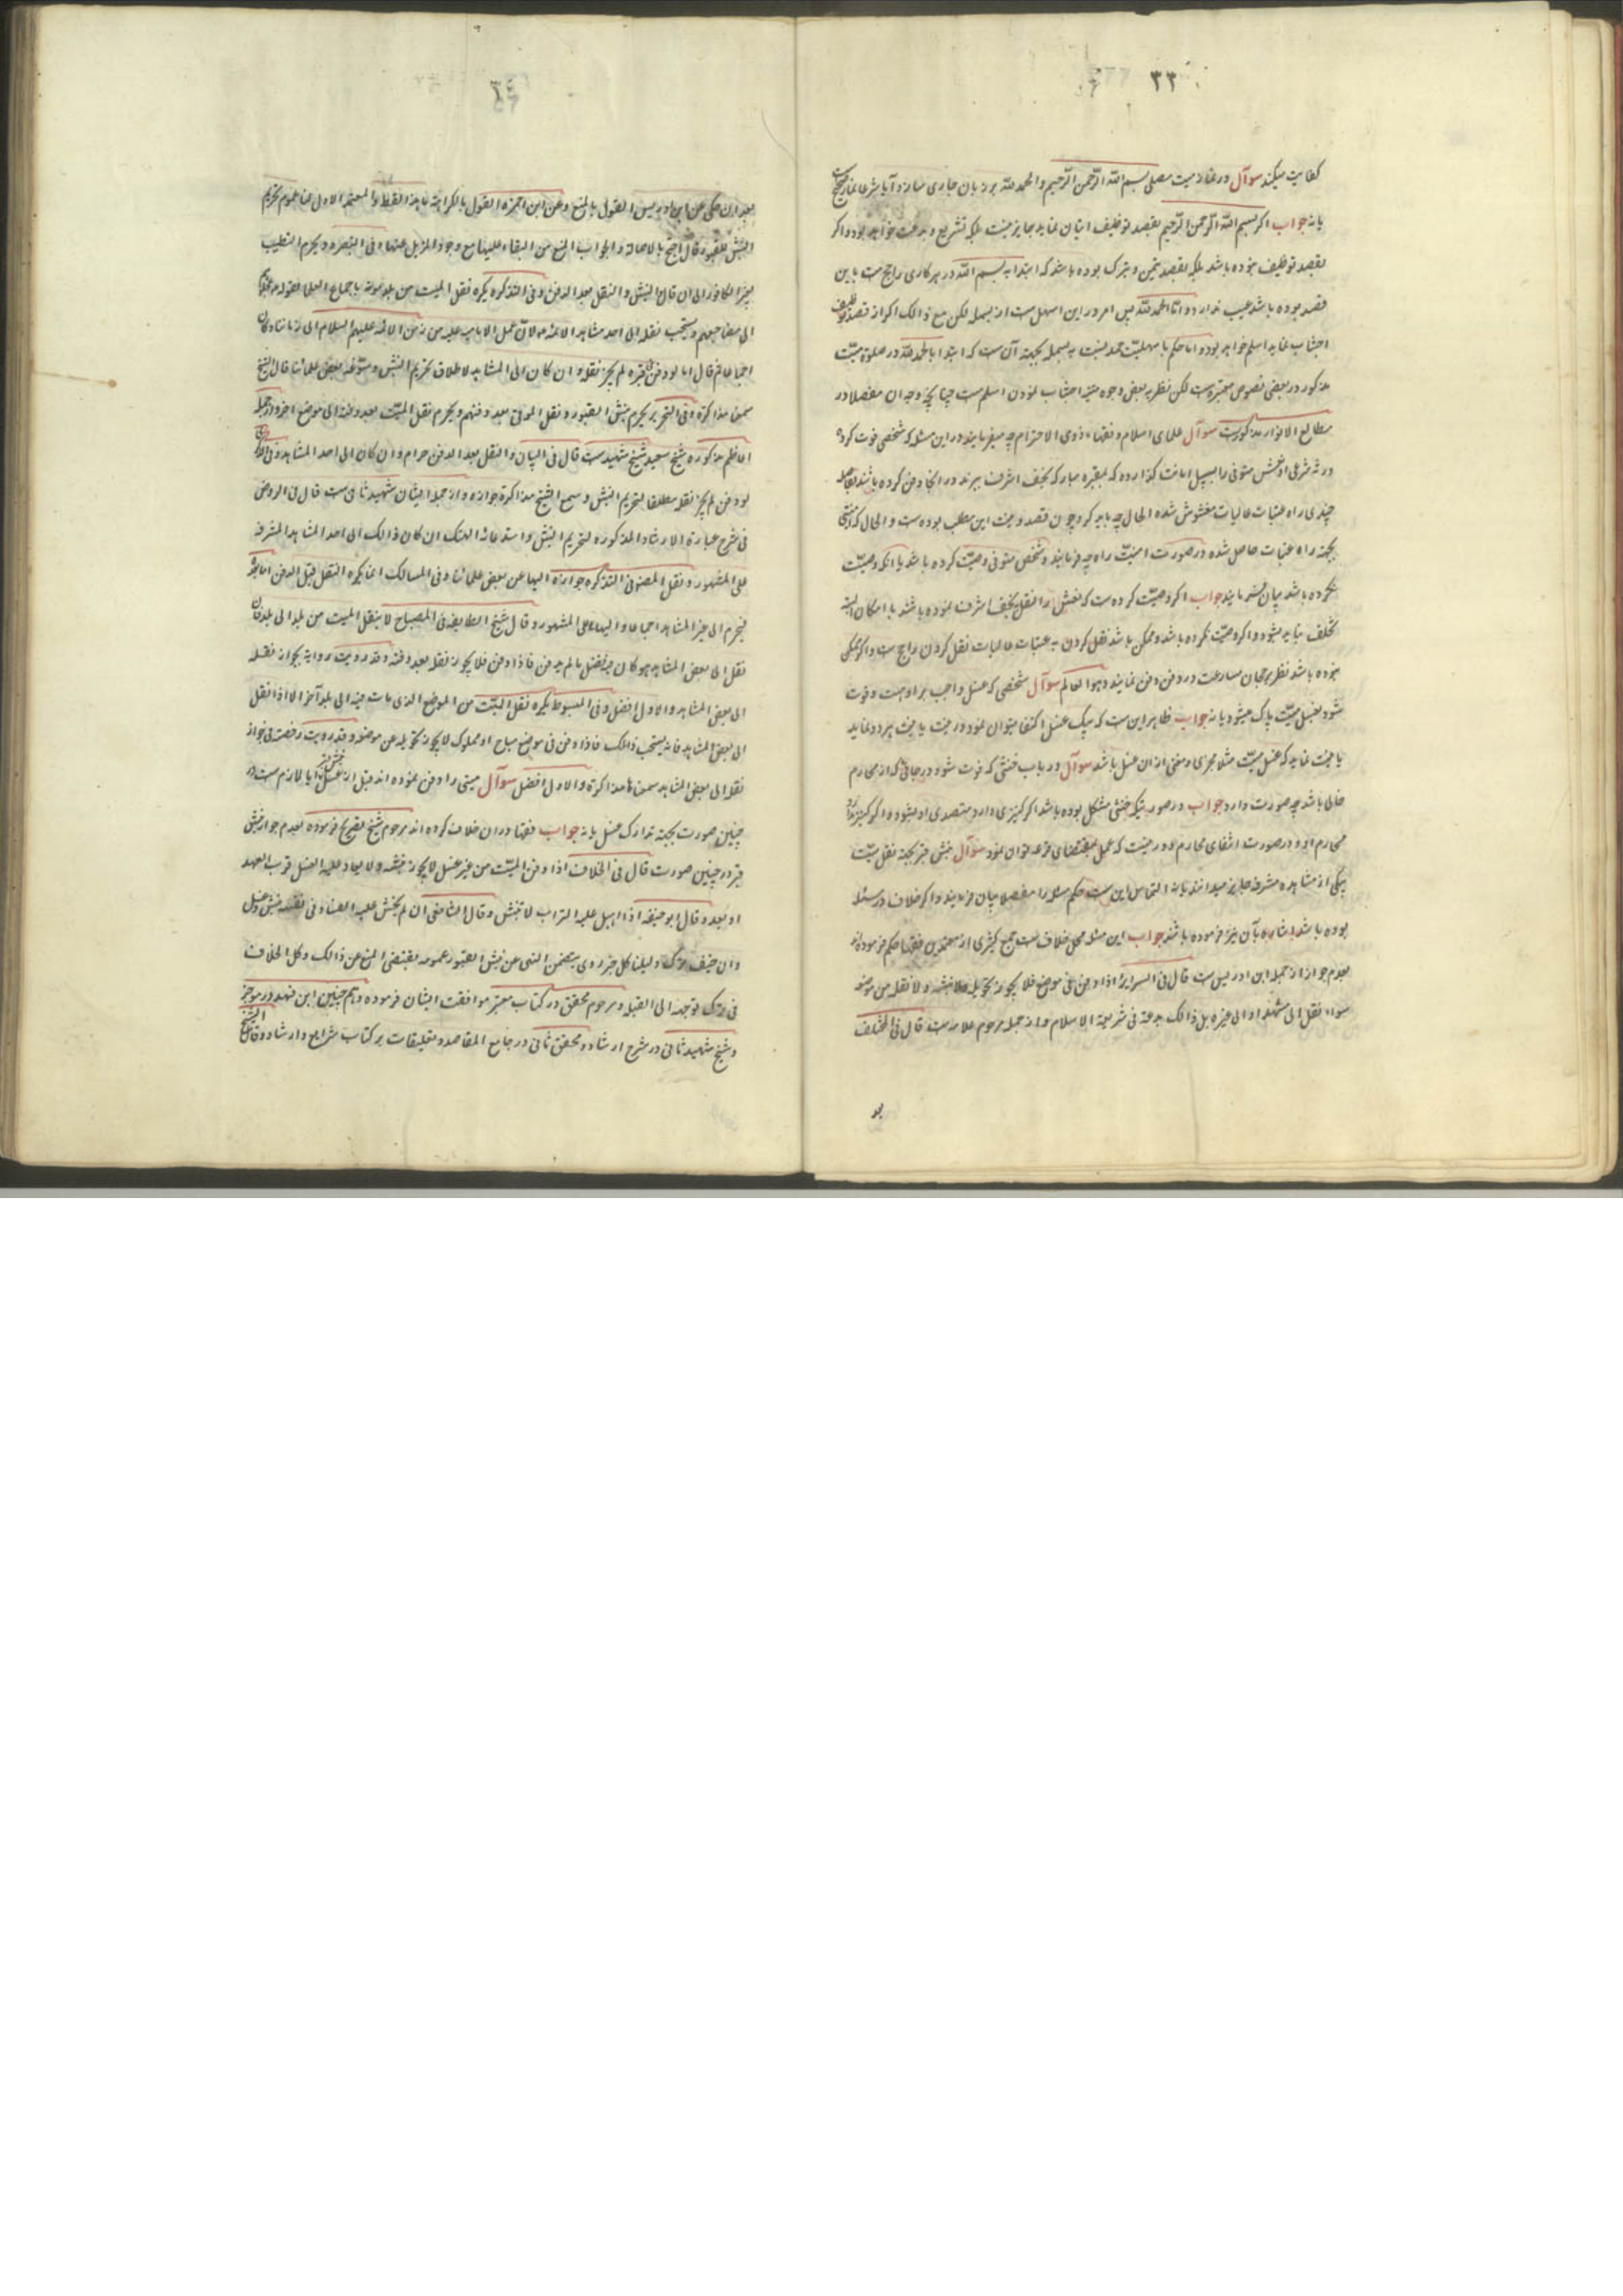 ۳۳
کفایت میکند سوآل در نماز میت مصلی بسم الله الرّحمن الرّحیم والحمد لله بر زبان جاری سازد آیا شرعا نماز صحیح است
یا نه جواب اکر بسم الله الرّحمن الرّحیم بقصد توظیف اتیان نماید جایز نیست بلکه تشریع و بدعت خواهد بود و اکر
بقصد توظیف نبوده باشد بلکه بقصد تیمن و تبرک بوده باشد که ابتدا به بسم الله در هر کاری راجح است باین
قصد بوده باشد عیب ندارد و امّا الحمد لله پس امر در این اسهل است از بسمله لکن مع ذالک اکر از قصد توظیف
اجتناب نماید اسلم خواهد بود و اما حکم با سهلیّت حمد نسبت به بسمله بجهة آن ست که ابتدا بالحمد لله در صلوة میّت
مذکور در بعضی نصوص معتبره ست لکن نظر به بعضی وجوه اجتناب نمودن اسلم ست چنانچه وجه ان مفصلا در
مطالع الانوار مذکورست سوآل علمای اسلام و فقهاء ذوی الاحترام چه میفرمایند در این مسئله که شخصی فوت کرده
ورثه شرعی او نعش متوفی را بسبیل امانت کذارده که بمقبره مبارکه نجف اشرف ببرند در انجا دفن کرده باشند
چندی راه عتبات عالیات مغشوش شده الحال چه باید کرد چون قصد و نیت این مطلب بوده ست و الحال که
بجهة راه عتبات حاصل شده در صورت امنیّت راه چه فرمایند و شخص متوفی وصیّت کرده باشد یا انکه وصیّت
نکرده باشد بیان فرمایند جواب اکر وصیّت کرده ست که نعش را نقل بنجف اشرف نموده باشند با امکان البته
تخلف نباید بشود و اکر وصیّت نکرده باشد و ممکن باشد نقل کردن به عتبات عالیات نقل کردن راجح ست و اکر ممکن
نبوده باشد نظر برجحان مسارعت در دفن دفن نمایند و هو العالم سوآل شخصی که غسل واجب بر او هست و فوت
شود بغسل میّت پاک میشود یا نه جواب ظاهر این ست که بیک غسل اکتفا میتوان نمود و نیت
یا نیت نماید که غسل میّت مثلا مجزی و مغنی از ان غسل باشد سوآل در باب خنثی که فوت شود در جائی که از محارم
خالی باشد چه صورت دارد جواب در صورتیکه خنثی مشکل بوده باشد اکر کنیزی دارد متصدی او بشود و اکر کنیز ندارد
محارم او و در صورت انتفای محارم دور نیست که عمل بمقتضای قرعه توان نمود سوآل نبش قبر بجهة نقل میّت
بیکی از مشاهد مشرفه جایز میدانند یا نه التماس این ست حکم مسئله را مفصلا بیان فرمایند و اکر خلاف در مسئله
بوده باشد اشاره بآن نیز فرموده باشند جواب این مسئله محل خلاف ست جمع کثیری از معتمدین فقها حکم فرموده اند
بعدم جواز از جمله ابن ادریس ست قال فی السرایر اذا دفن فی موضع فلا یجوز تحویله ولا نبشه و لا نقله من موضعه
سواء نقل الی مشهد او الی غیره بل ذالک بدعة فی شریعة الاسلام و از جمله مرحوم علامه ست قال فی المختلف
بعد ان حکی عن ابن ادریس القول بالمنع و عن ابن حمزه القول بالکراهة المعتمد الاول لنا عموم تحریم
النبش الی ان قال احتج بالاصالة و الجواب المنع من البقاء علیها مع وجود المزیل عنها و فی التبصره و یحرم التطییب
بغیر الکافور الی ان قال و النبش و النقل بعد الدفن و فی التذکره یکره نقل المیت من بلد موته باجماع العلماء
الی مضاجعهم و یستحب نقله الی احد مشاهد الائمة لان عمل الامامیه علیه من زمن الائمة علیهم السلام الی زماننا و کان
اجماعا ثم قال اما لو دفن فی قبره لم یجز نقله و ان کان الی المشاهد لاطلاق تحریم النبش و سوّغه بعض علمائنا قال الشیخ
سمعنا مذاکرة و فی التحریر یحرم نبش القبور و نقل الموتی بعد دفنهم و یحرم نقل المیّت بعد دفنه الی موضع اخر و از جمله
اعاظم مذکوره شیخ سعید شیخ شهید ست قال فی البیان و النقل بعد الدفن حرام و ان کان الی احد المشاهد و فی الذکری
لو دفن لم یجز نقله مطلقا لتحریم النبش و سمع الشیخ مذاکرة جوازه و از جمله ایشان شهید ثانی ست قال فی الروض
فی شرح عبارة الارشاد المذکوره لتحریم النبش و استدعائه الهتک ان کان ذالک الی احد المشاهد المشرفه
علی المشهور و نقل المصنف فی التذکره جوازه الیها عن بعض علمائنا و فی المسالک انما یکره النقل قبل الدفن اما بعده
فیحرم الی غیر المشاهد اجماعا و الیها علی المشهور و قال شیخ الطایفه فی المصباح لا ینقل المیت من بلد الی بلد فان
نقل الی بعض المشاهد کان فیه فضل ما لم یدفن فاذا دفن فلا یجوز نقله بعد دفنه و قد رویت روایة بجواز نقله
الی بعض المشاهد و الاول افضل و فی المبسوط یکره نقل المیّت من الموضع الذی مات فیه الی بلد آخر الا اذا نقل
الی بعض المشاهد فانه یستحب ذالک فاذا دفن فی موضع مباح او مملوک لا یجوز تحویله عن موضعه و قد رویت رخصة فی جواز
نقله الی بعض المشاهد سمعناها مذاکرة و الاول افضل سوآل میتی را دفن نموده اند قبل از غسل آیا لازم ست در
چنین صورت بجهة تدارک غسل یا نه جواب فقها در ان خلاف کرده اند مرحوم شیخ تصریح فرموده بعدم جواز نبش
قبر در چنین صورت قال فی الخلاف اذا دفن المیّت من غیر غسل لا یجوز نبشه و لا یعاد علیه الغسل قرب العهد
او بعد و قال ابو حنیفه اذا اهیل علیه التراب لا ینبش و قال الشافعی ان لم یخش علیه الفساد فی نفسه نبش و غسل
و ان خیف ترک دلیلنا کل خبر روی یتضمن النهی عن نبش القبور عمومه یقتضی المنع عن ذالک و کل الخلاف
فی ترک توجهه الی القبله و مرحوم محقق در کتاب معتبر موافقت ایشان فرموده و هم چنین ابن فهد در موجز
و شیخ شهید ثانی در شرح ارشاد و محقق ثانی در جامع المقاصد و تعلیقات بر کتاب شرایع و ارشاد